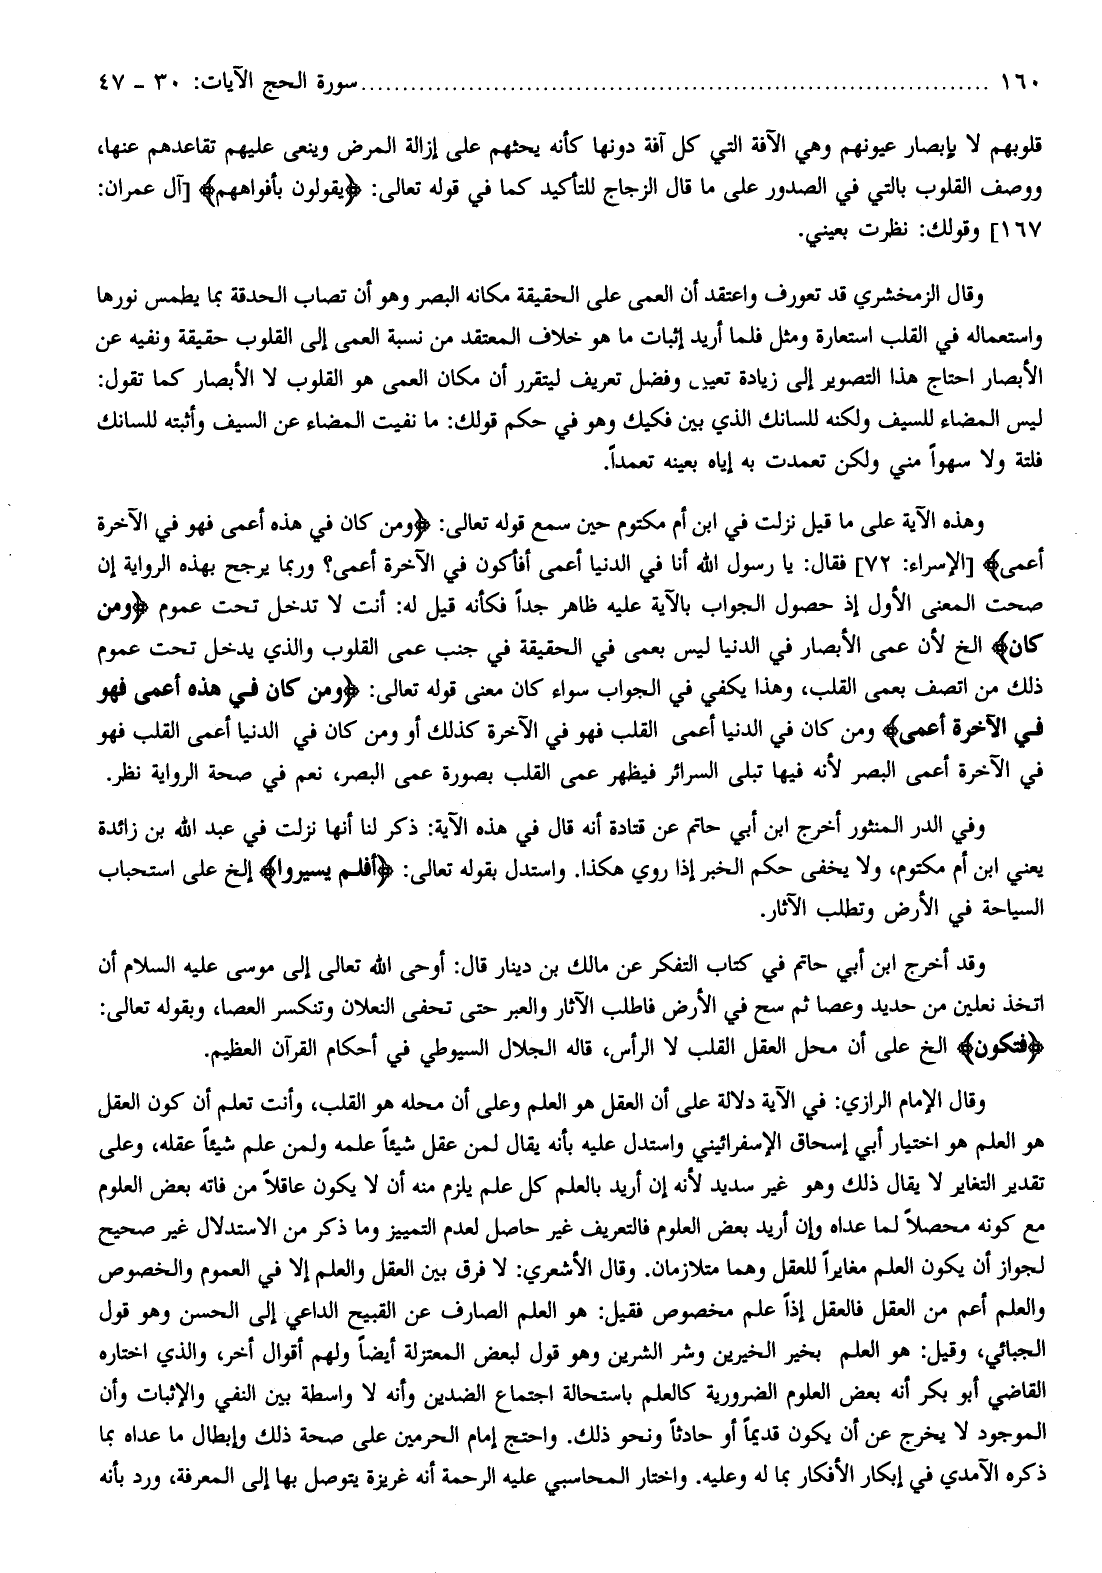 ١٦٠ ........................................................................ سورة الحج الآيات: ٣٠ - ٤٧
قلوبهم لا بإبصار عيونهم وهي الآفة التي كل آفة دونها كأنه يحثهم على إزالة المرض وينعى عليهم تقاعدهم عنها،
ووصف القلوب بالتي في الصدور على ما قال الزجاج للتأكيد كما في قوله تعالى: ﴿يقولون بأفواههم﴾ [آل عمران:
١٦٧] وقولك: نظرت بعيني.
وقال الزمخشري قد تعورف واعتقد أن العمى على الحقيقة مكانه البصر وهو أن تصاب الحدقة بما يطمس نورها
واستعماله في القلب استعارة ومثل فلما أريد إثبات ما هو خلاف المعتقد من نسبة العمى إلى القلوب حقيقة ونفيه عن
الأبصار احتاج هذا التصوير إلى زيادة تعيين وفضل تعريف ليتقرر أن مكان العمى هو القلوب لا الأبصار كما تقول:
ليس المضاء للسيف ولكنه للسانك الذي بين فكيك وهو في حكم قولك: ما نفيت المضاء عن السيف وأثبته للسانك
فلتة ولا سهواً مني ولكن تعمدت به إياه بعينه تعمداً.
وهذه الآية على ما قيل نزلت في ابن أم مكتوم حين سمع قوله تعالى: ﴿ومن كان في هذه أعمى فهو في الآخرة
أعمى﴾ [الإسراء: ٧٢] فقال: يا رسول الله أنا في الدنيا أعمى أفأكون في الآخرة أعمى؟ وربما يرجح بهذه الرواية إن
صحت المعنى الأول إذ حصول الجواب بالآية عليه ظاهر جداً فكأنه قيل له: أنت لا تدخل تحت عموم ﴿ومن
كان﴾ الخ لأن عمى الأبصار في الدنيا ليس بعمى في الحقيقة في جنب عمى القلوب والذي يدخل تحت عموم
ذلك من اتصف بعمى القلب، وهذا يكفي في الجواب سواء كان معنى قوله تعالى: ﴿ومن كان في هذه أعمى فهو
في الآخرة أعمى﴾ ومن كان في الدنيا أعمى القلب فهو في الآخرة كذلك أو ومن كان في الدنيا أعمى القلب فهو
في الآخرة أعمى البصر لأنه فيها تبلى السرائر فيظهر عمى القلب بصورة عمى البصر، نعم في صحة الرواية نظر.
وفي الدر المنثور أخرج ابن أبي حاتم عن قتادة أنه قال في هذه الآية: ذكر لنا أنها نزلت في عبد الله بن زائدة
يعني ابن أم مكتوم، ولا يخفى حكم الخبر إذا روي هكذا. واستدل بقوله تعالى: ﴿أفلم يسيروا﴾ إلخ على استحباب
السياحة في الأرض وتطلب الآثار.
وقد أخرج ابن أبي حاتم في كتاب التفكر عن مالك بن دينار قال: أوحى الله تعالى إلى موسى عليه السلام أن
اتخذ نعلين من حديد وعصا ثم سح في الأرض فاطلب الآثار والعبر حتى تحفى النعلان وتنكسر العصا، وبقوله تعالى:
﴿فتكون﴾ الخ على أن محل العقل القلب لا الرأس، قاله الجلال السيوطي في أحكام القرآن العظيم.
وقال الإمام الرازي: في الآية دلالة على أن العقل هو العلم وعلى أن محله هو القلب، وأنت تعلم أن كون العقل
هو العلم هو اختيار أبي إسحاق الإسفرائيني واستدل عليه بأنه يقال لمن عقل شيئاً علمه ولمن علم شيئاً عقله، وعلى
تقدير التغاير لا يقال ذلك وهو غير سديد لأنه إن أريد بالعلم كل علم يلزم منه أن لا يكون عاقلاً من فاته بعض العلوم
مع كونه محصلاً لما عداه وإن أريد بعض العلوم فالتعريف غير حاصل لعدم التمييز وما ذكر من الاستدلال غير صحيح
لجواز أن يكون العلم مغايراً للعقل وهما متلازمان. وقال الأشعري: لا فرق بين العقل والعلم إلا في العموم والخصوص
والعلم أعم من العقل فالعقل إذاً علم مخصوص فقيل: هو العلم الصارف عن القبيح الداعي إلى الحسن وهو قول
الجبائي، وقيل: هو العلم بخير الخيرين وشر الشرين وهو قول لبعض المعتزلة أيضاً ولهم أقوال أخر، والذي اختاره
القاضي أبو بكر أنه بعض العلوم الضرورية كالعلم باستحالة اجتماع الضدين وأنه لا واسطة بين النفي والإثبات وأن
الموجود لا يخرج عن أن يكون قديماً أو حادثاً ونحو ذلك. واحتج إمام الحرمين على صحة ذلك وإبطال ما عداه بما
ذكره الآمدي في إبكار الأفكار بما له وعليه. واختار المحاسبي عليه الرحمة أنه غريزة يتوصل بها إلى المعرفة، ورد بأنه